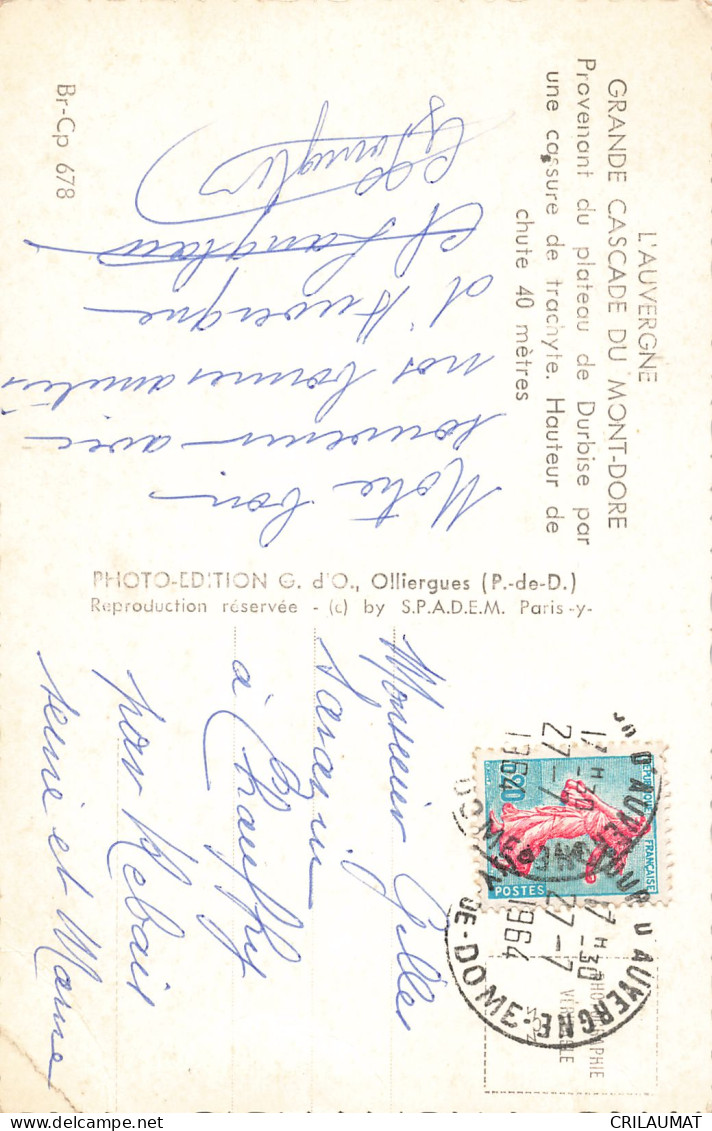 L'AUVERGNE
GRANDE CASCADE DU MONT-DORE
Provenant du plateau de Durbise par
une cassure de trachyte. Hauteur de
chute 40 mètres
Notre bon
souvenir avec
nos bonnes amitiés
d'Auvergne
Br-Cp 678
PHOTO-EDITION G. d'O., Olliergues (P.-de-D.)
Reproduction réservée - (c) by S.P.A.D.E.M. Paris -y-
Monsieur Gilles
Sarasin
à Chauffry
par Rebais
seine et Marne
0,20
REPUBLIQUE FRANÇAISE
POSTES
17 H -30
27 -7
1964
D'AUVERGNE
17 H -30
27 -7
1964
D'AUVERGNE
DE-DOME
PHOTOGRAPHIE
VERITABLE
CRILAUMAT